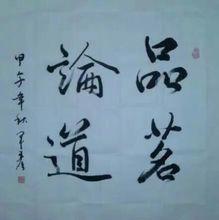 品茗
論道
甲午年秋